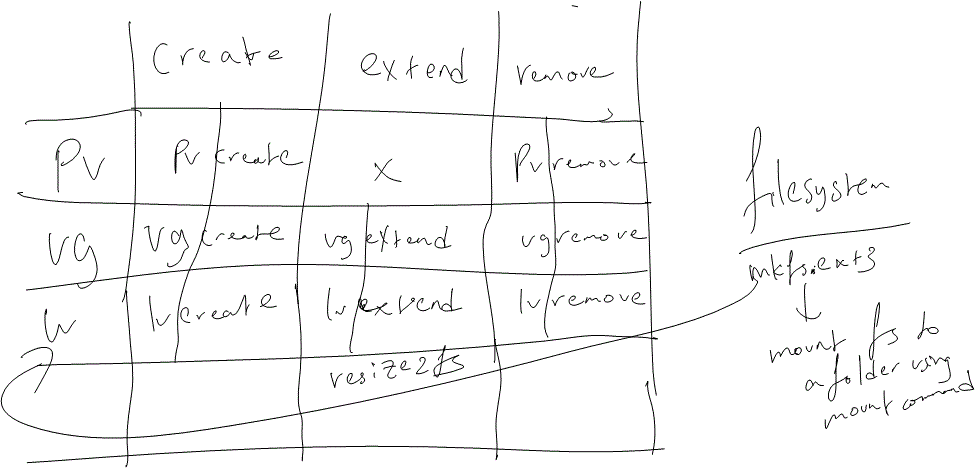 create extend remove
Pv Pvcreate x Pvremove
vg vgcreate vgextend vgremove
lv lvcreate lvextend lvremove
resize2fs
filesystem
mkfs.ext3
mount fs to
a folder using
mount command